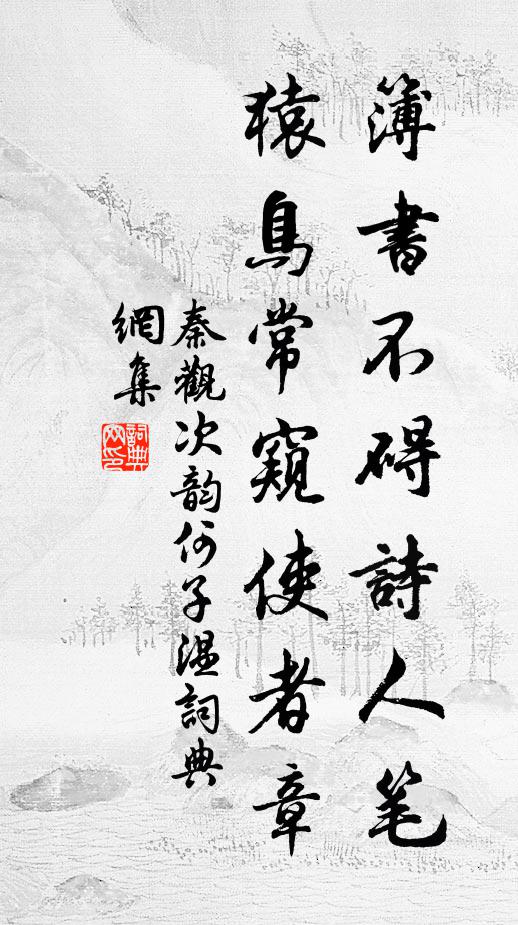 簿書不碍詩人笔
猿鳥常窺使者章
秦觀次韵何子温詞典
網集
詞典
网印